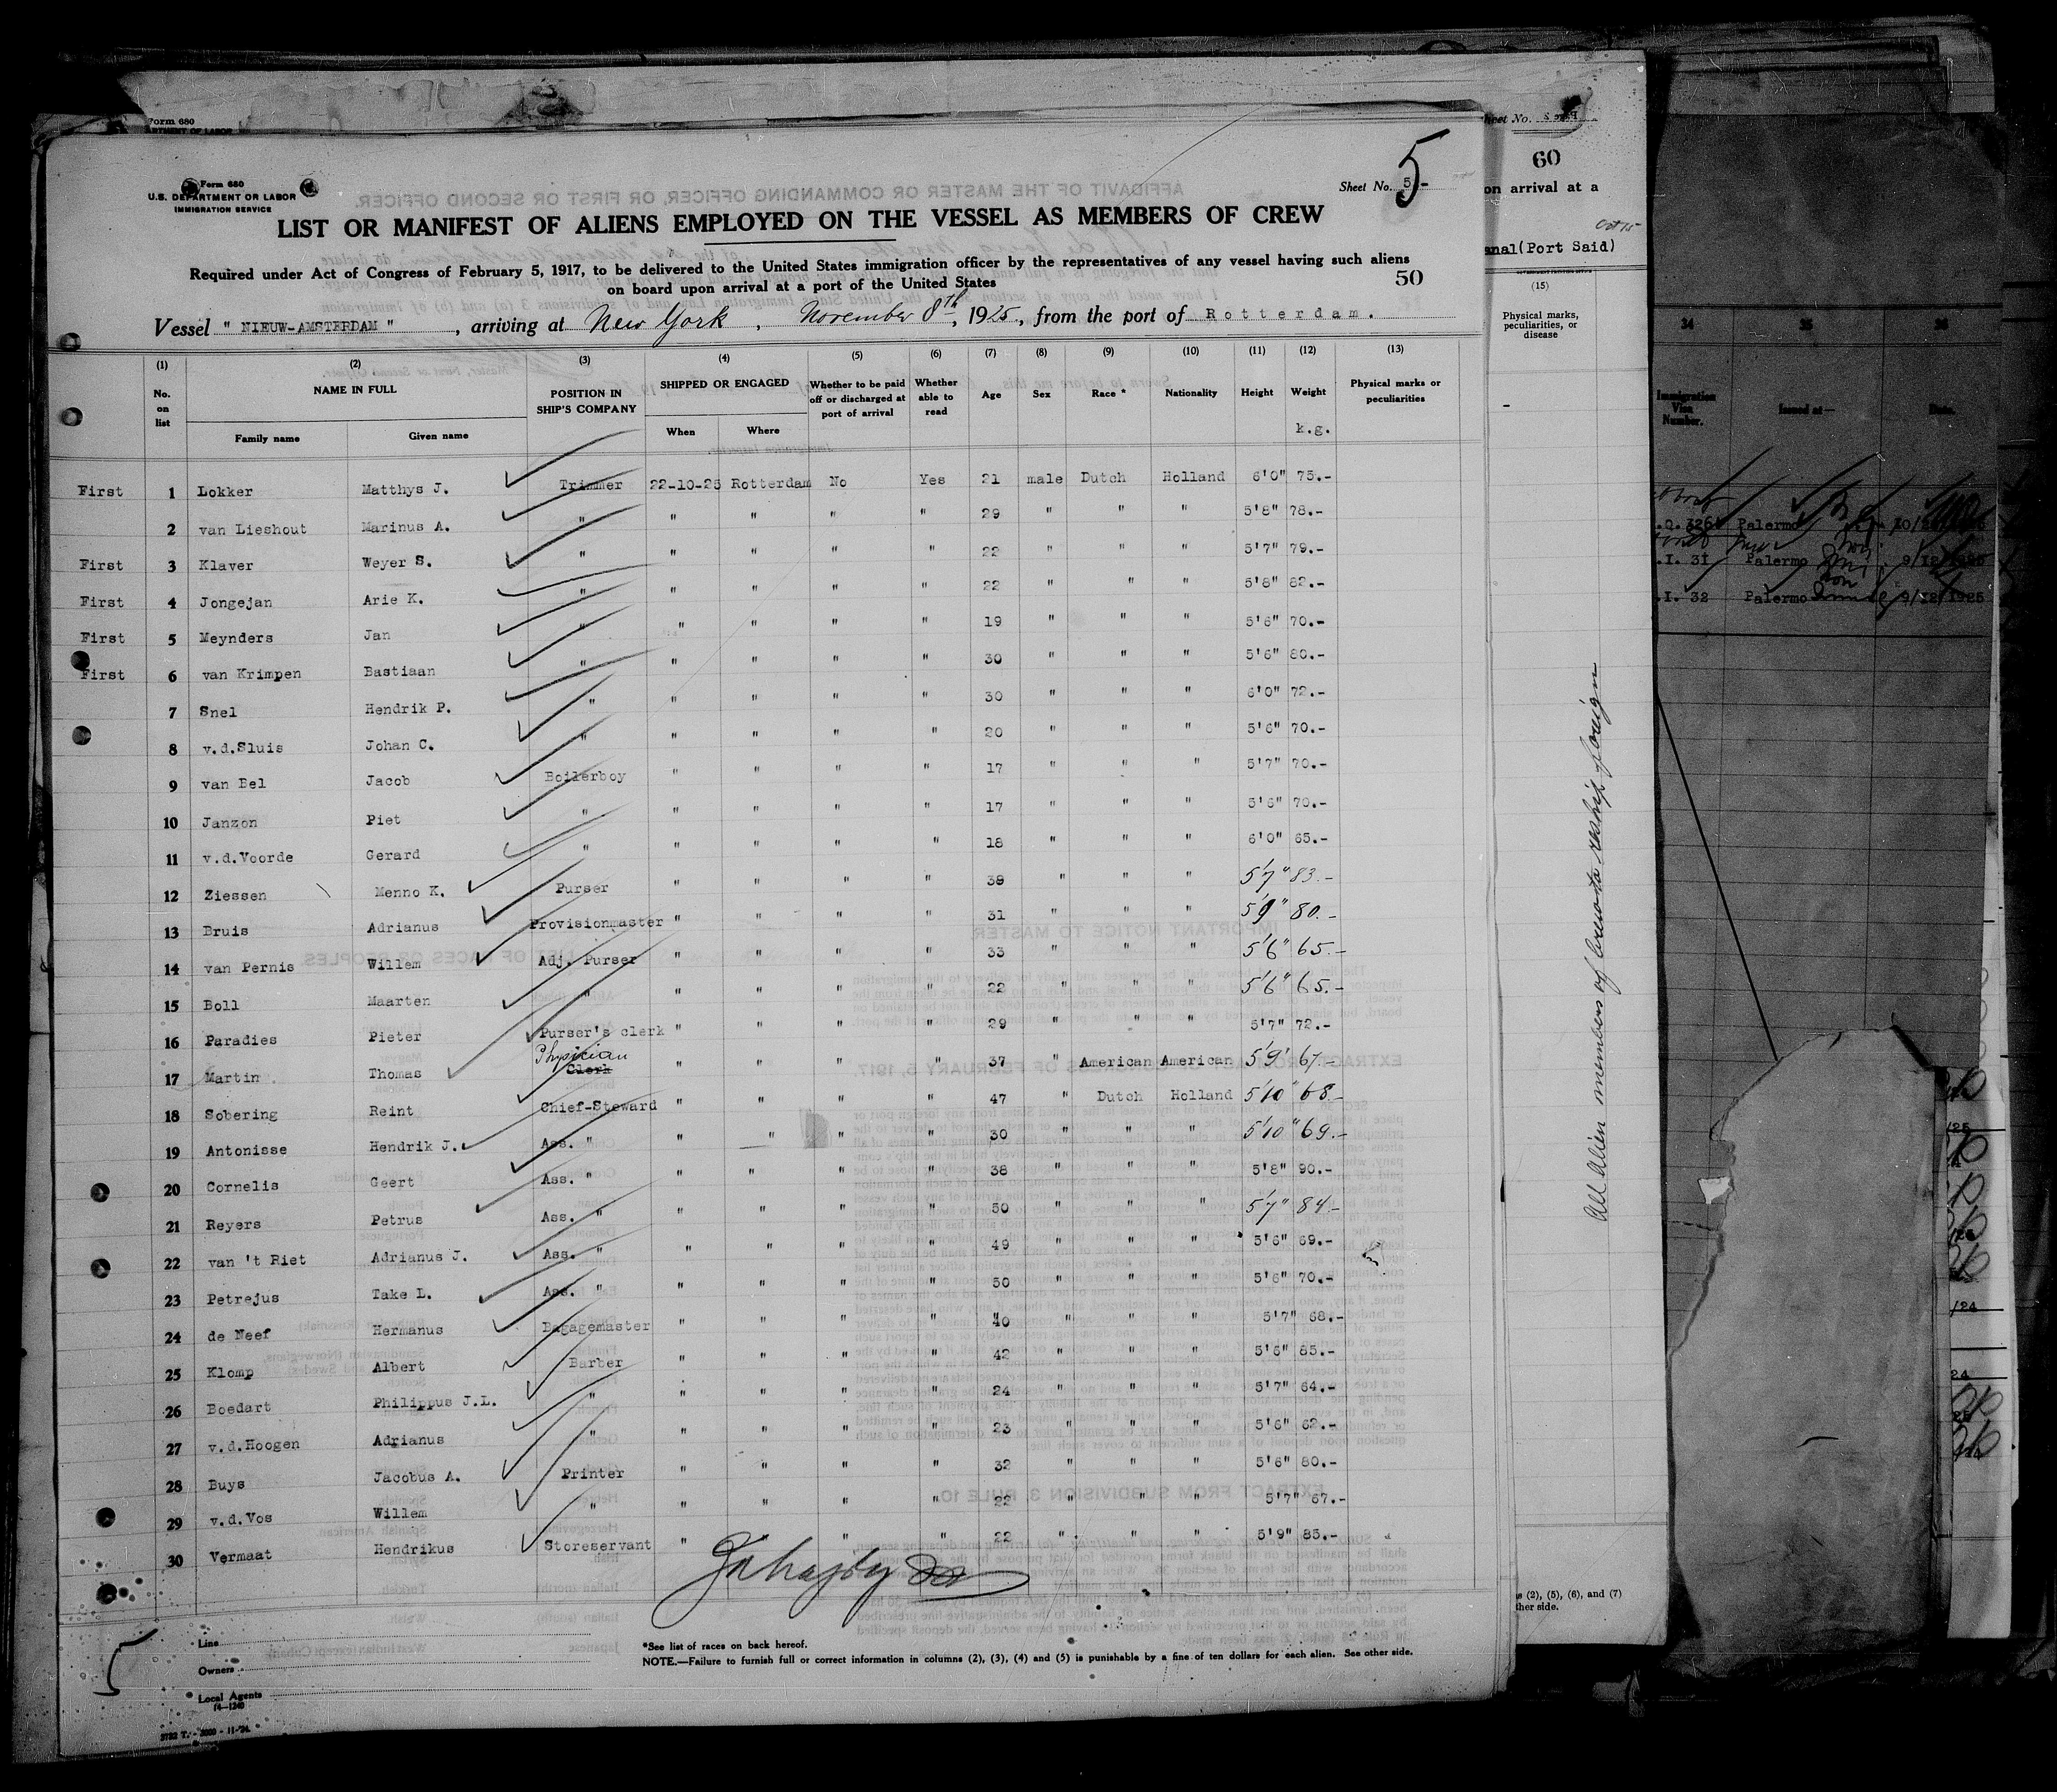 Form 680
Form 680
U.S. DEPARTMENT OR LABOR
IMMIGRATION SERVICE
Sheet No. 5 5-
LIST OR MANIFEST OF ALIENS EMPLOYED ON THE VESSEL AS MEMBERS OF CREW
Required under Act of Congress of February 5, 1917, to be delivered to the United States immigration officer by the representatives of any vessel having such aliens
on board upon arrival at a port of the United States
50
Vessel " NIEUW-AMSTERDAM " , arriving at New York , November 8th, 1925, from the port of Rotterdam.
(1) (2) (3) (4) (5) (6) (7) (8) (9) (10) (11) (12) (13)
No. on list NAME IN FULL POSITION IN SHIP'S COMPANY SHIPPED OR ENGAGED Whether to be paid off or discharged at port of arrival Whether able to read Age Sex Race * Nationality Height Weight Physical marks or peculiarities
Family name Given name When Where k.g.
First 1 Lokker Matthys J. Trimmer 22-10-25 Rotterdam No Yes 21 male Dutch Holland 6'0" 75.-
2 van Lieshout Marinus A. " " " " " 29 " " " 5'8" 78.-
First 3 Klaver Weyer S. " " " " " 22 " " " 5'7" 79.-
First 4 Jongejan Arie K. " " " " " 22 " " " 5'8" 82.-
First 5 Meynders Jan " " " " " 19 " " " 5'6" 70.-
First 6 van Krimpen Bastiaan " " " " " 30 " " " 5'6" 80.-
7 Snel Hendrik P. " " " " " 30 " " " 6'0" 72.-
8 v.d.Sluis Johan C. " " " " " 20 " " " 5'6" 70.-
9 van Bel Jacob Boilerboy " " " " 17 " " " 5'7" 70.-
10 Janzon Piet " " " " " 17 " " " 5'6" 70.-
11 v.d.Voorde Gerard " " " " " 18 " " " 6'0" 65.-
12 Ziessen Menno K. Purser " " " " 38 " " " 5'7" 83.-
13 Bruis Adrianus Provisionmaster " " " " 31 " " " 5'9" 80.-
14 van Pernis Willem Adj. Purser " " " " 33 " " " 5'6" 65.-
15 Boll Maarten " " " " " 22 " " " 5'6" 65.-
16 Paradies Pieter Purser's clerk " " " " 29 " " " 5'7" 72.-
17 Martin Thomas Physician Clerk " " " " 37 " American American 5'9' 67.-
18 Sobering Reint Chief-Steward " " " " 47 " Dutch Holland 5'10" 68.-
19 Antonisse Hendrik J. Ass. " " " " " 30 " " " 5'10" 69.-
20 Cornelis Geert Ass. " " " " " 38 " " " 5'8" 90.-
21 Reyers Petrus Ass. " " " " " 50 " " " 5'7" 84.-
22 van 't Riet Adrianus J. Ass. " " " " " 49 " " " 5'6" 69.-
23 Petrejus Take L. Ass. " " " " " 50 " " " 5'6" 70.-
24 de Neef Hermanus Bagagemaster " " " " 40 " " " 5'7" 68.-
25 Klomp Albert Barber " " " " 42 " " " 5'6" 85.-
26 Boedart Philippus J.L. " " " " " 24 " " " 5'7" 64.-
27 v.d.Hoogen Adrianus " " " " " 23 " " " 5'6" 62.-
28 Buys Jacobus A. Printer " " " " 32 " " " 5'6" 80.-
29 v.d.Vos Willem " " " " " 22 " " " 5'7" 67.-
30 Vermaat Hendrikus Storeservant " " " 22 " " " 5'9" 85.-
5
Line
Owners
Local Agents
14-1240
*See list of races on back hereof.
NOTE.—Failure to furnish full or correct information in columns (2), (3), (4) and (5) is punishable by a fine of ten dollars for each alien. See other side.
Sheet No.
60
on arrival at a
(Port Said)
(15)
Physical marks, peculiarities, or disease
All Alien members of crew to reship foreign
(2), (5), (6), and (7)
other side.
34 35 36
Immigration Visa Number. Issued at— Date.
Palermo
.I. 31 Palermo
.I. 32 Palermo 9/12/1925